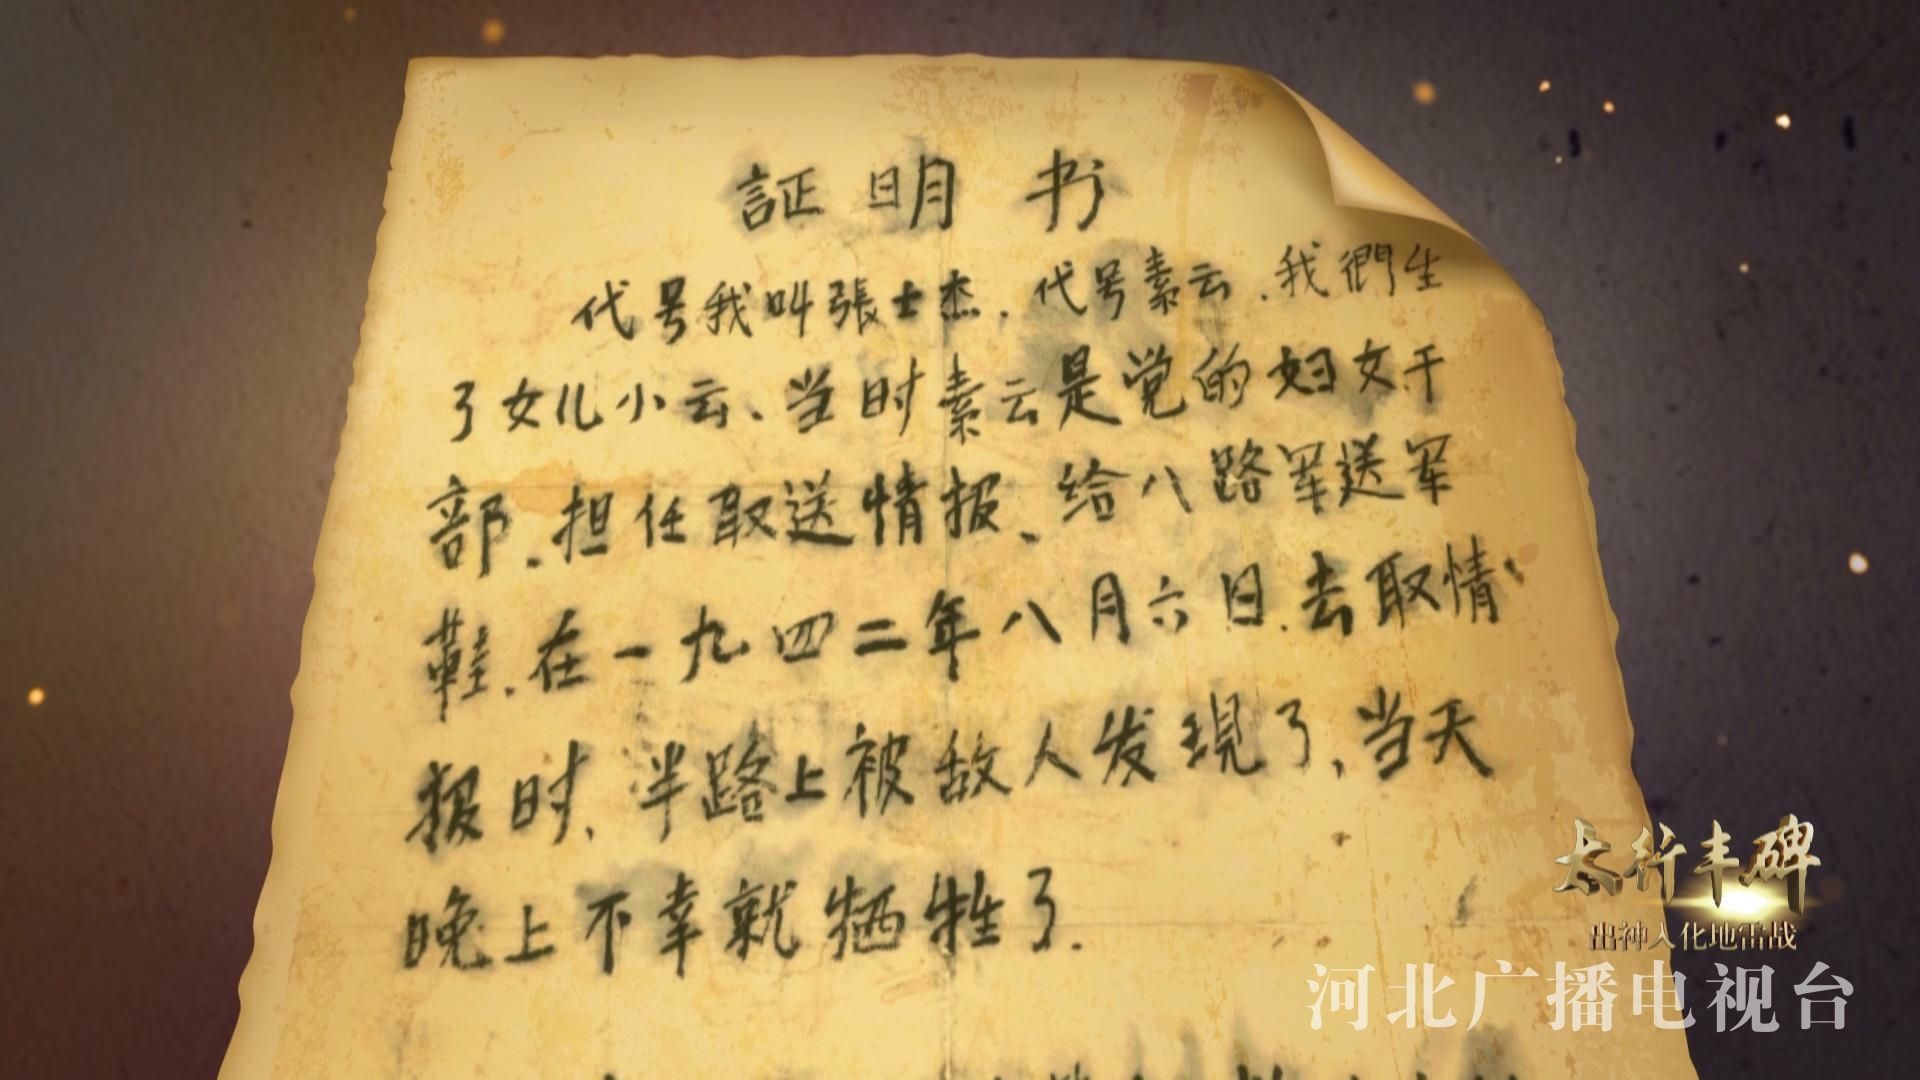 証明书
代号我叫張士杰.代号素云.我們生
了女儿小云、当时素云是党的妇女干
部.担任取送情报、给八路军送军
鞋.在一九四二年八月六日.去取情
报时、半路上被敌人发現了、当天
晚上不幸就牺牲了.
太行丰碑
出神入化地雷战
河北广播电视台